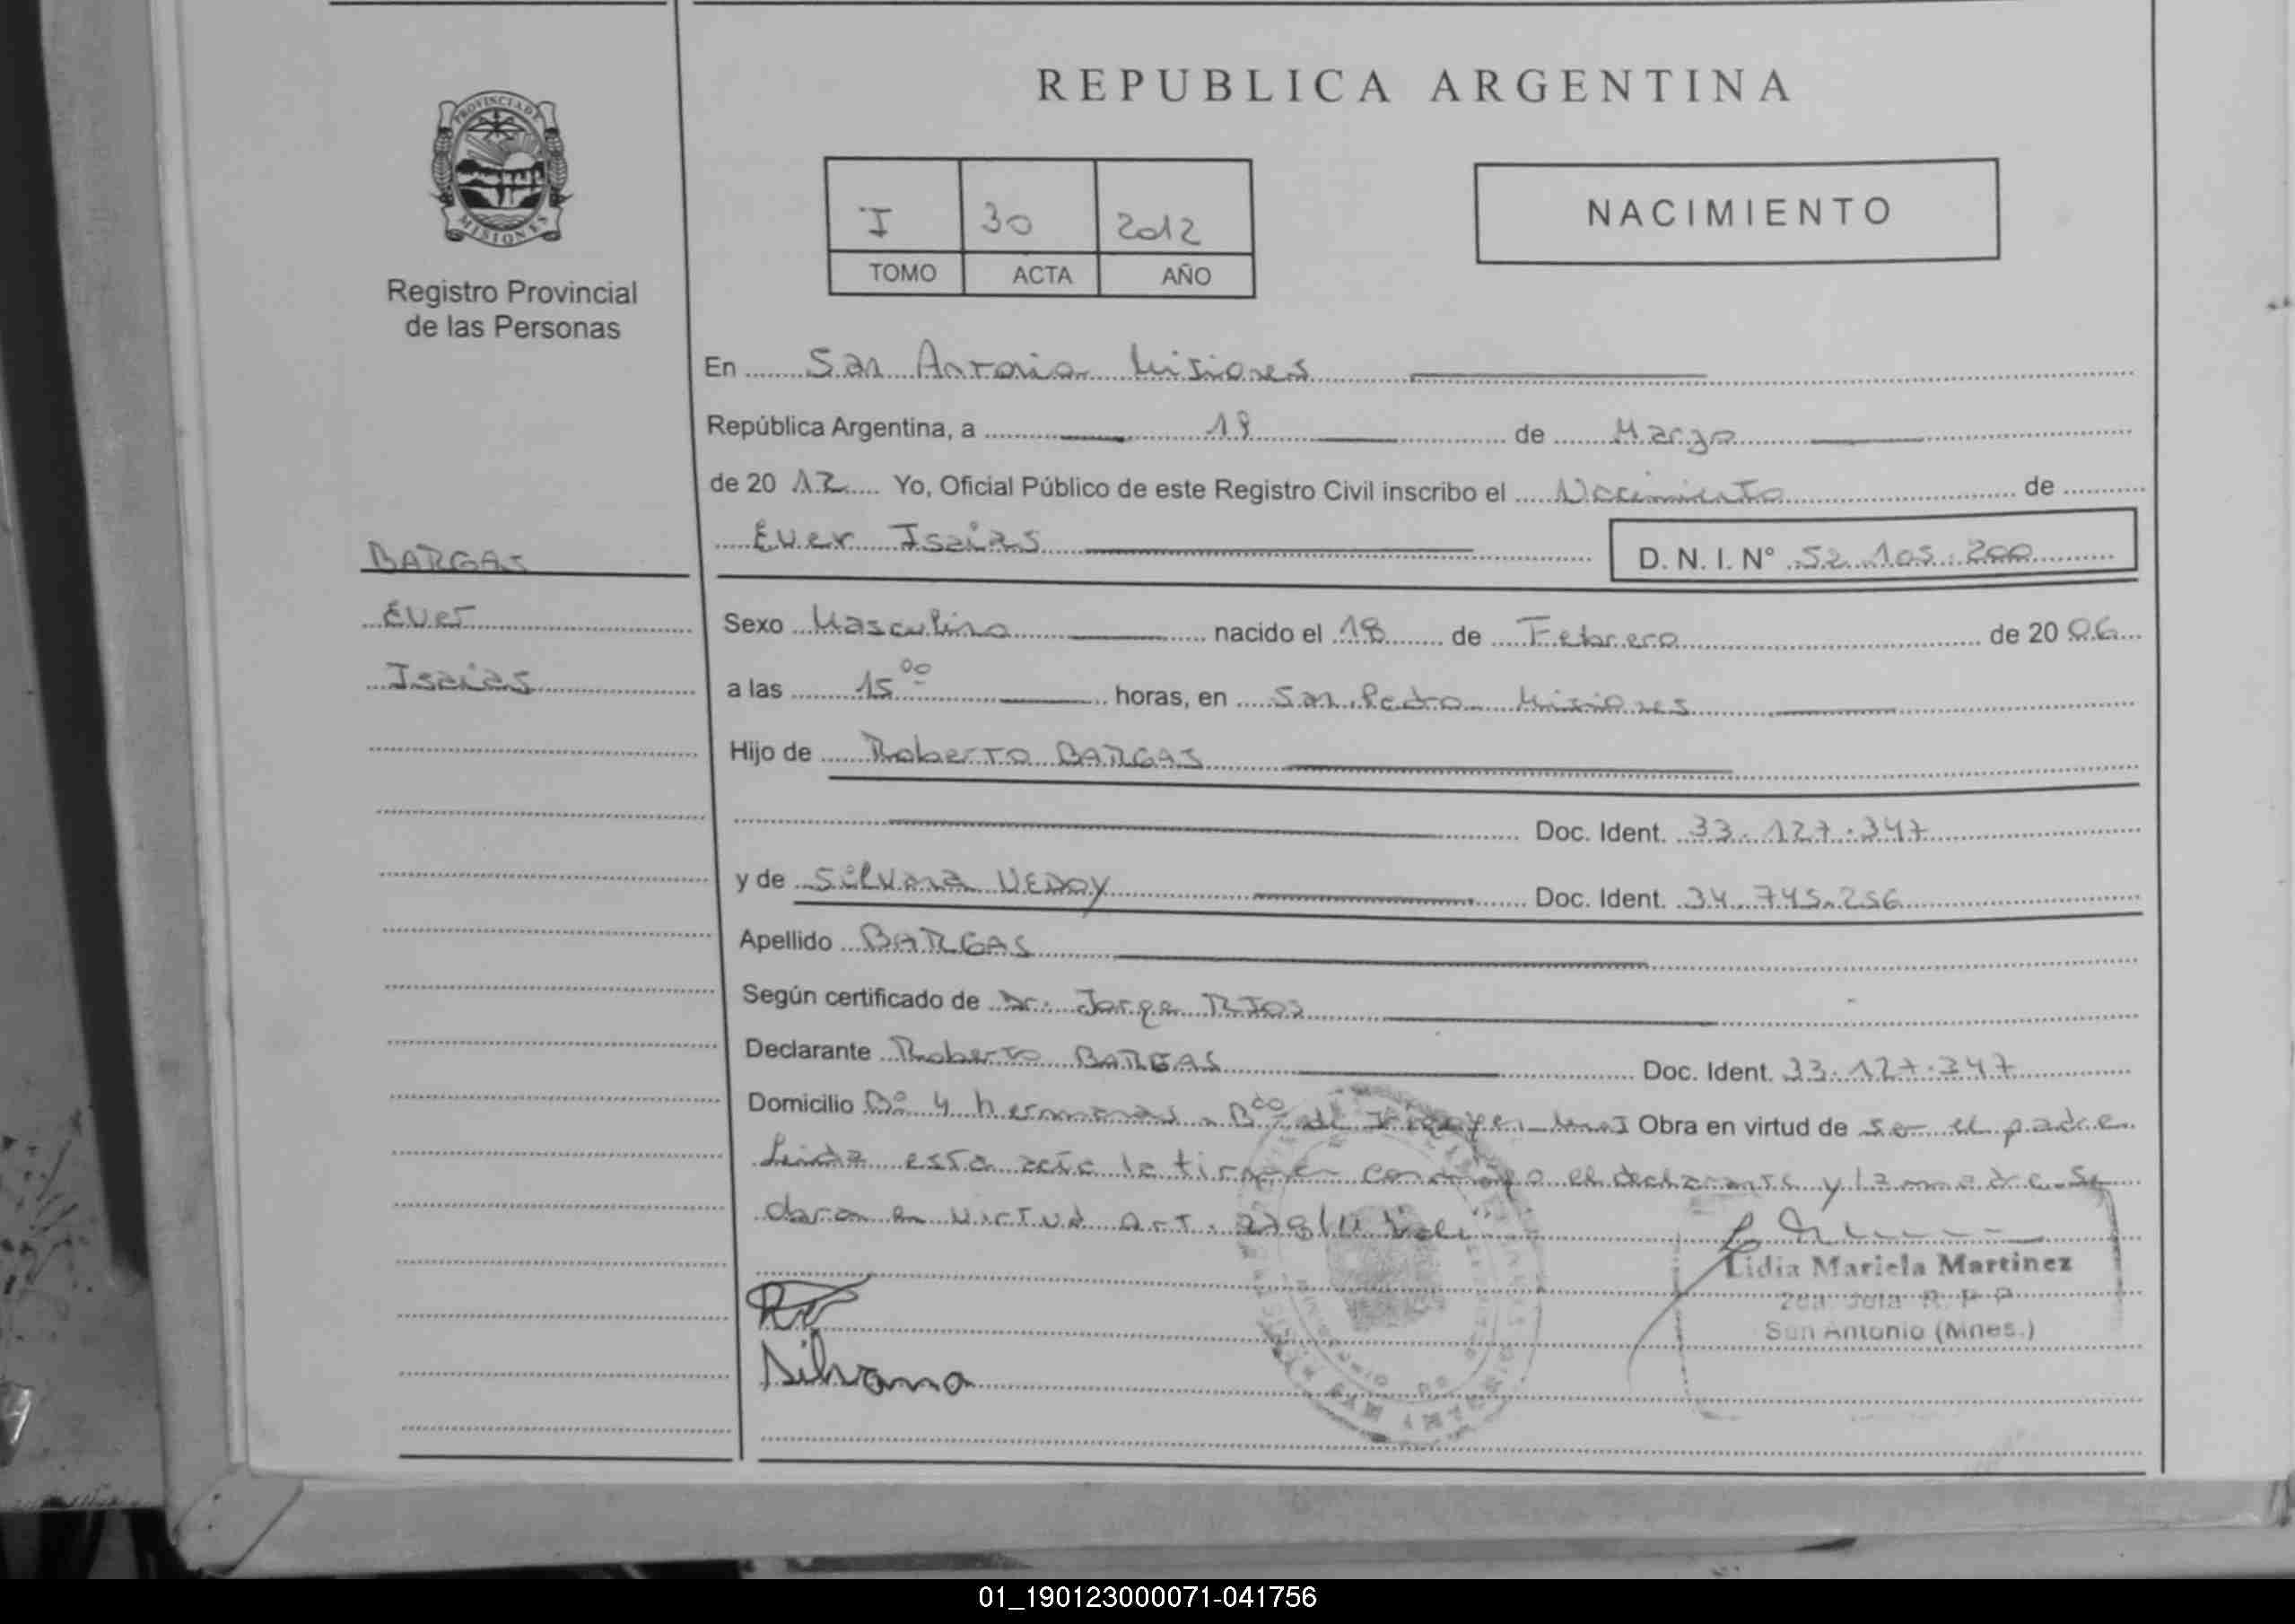 REPUBLICA ARGENTINA
PROVINCIA DE
MISIONES
Registro Provincial
de las Personas
I 30 2012
TOMO ACTA AÑO
NACIMIENTO
En San Antonio Misiones
República Argentina, a 19 de Marzo
de 20 12 Yo, Oficial Público de este Registro Civil inscribo el Nacimiento de
Ever Isaias D. N. I. N° 52.105.200
BARGAS
Ever
Isaias
Sexo Masculino nacido el 18 de Febrero de 20 06
a las 15 00 horas, en San Pedro Misiones
Hijo de Roberto BARGAS
Doc. Ident. 33.127.347
y de Silvana VEDOY Doc. Ident. 34.745.256
Apellido BARGAS
Según certificado de Dr. Jorge RIOS
Declarante Roberto BARGAS Doc. Ident. 33.127.347
Domicilio B° 4 hermanas - Bdo de Irigoyen Mnes Obra en virtud de ser el padre
Leida esta acta la firman conmigo el declarante y la madre. Se
labra en virtud art. 278/11
Lidia Mariela Martinez
2da. Jefa R. P. P.
San Antonio (Mnes.)
Silvana
01_190123000071-041756